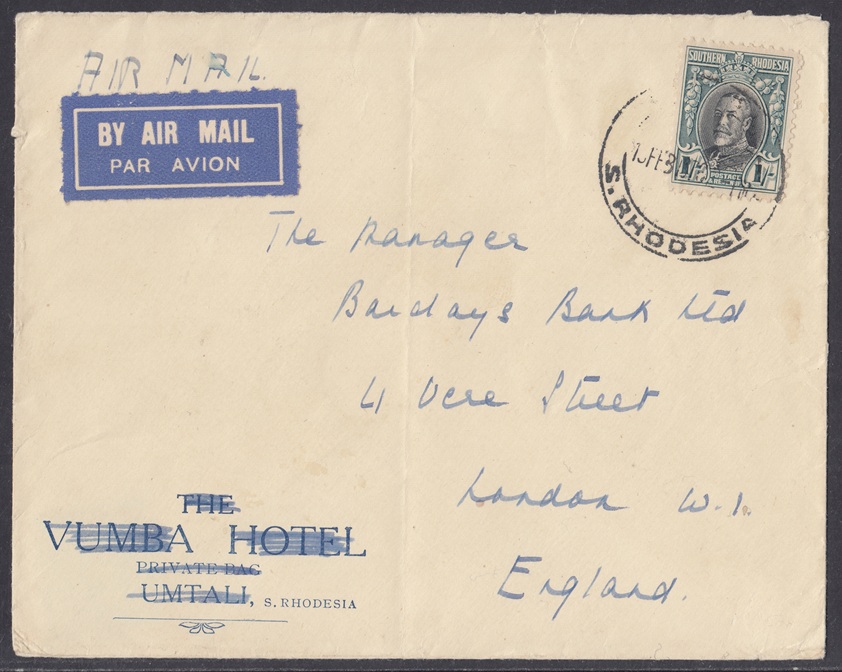 AIR MAIL.
BY AIR MAIL
PAR AVION
SOUTHERN RHODESIA
POSTAGE
1 1/-
S. RHODESIA
The Manager
Barclays Bank Ltd
4 Vere Street
London W.1.
England.
THE
VUMBA HOTEL
PRIVATE BAG
UMTALI, S. RHODESIA